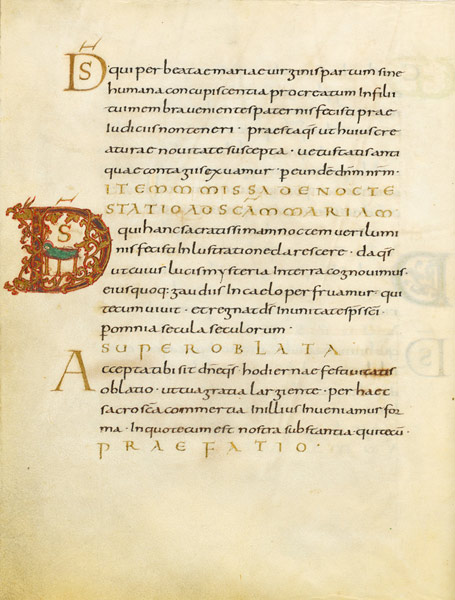 DS qui per beatae mariae virginis partum sine
humana concupiscentia procreatum In filii
tui membra venientes paternis fecisti prae
Iudiciis non teneri · praesta qs ut huius cre
aturae novitate suscepta · vetustatis anti
quae contagiis exuamur · per eundē dnm nrm ·
ITEM MISSA DE NOCTE
STATIO AD SCAM MARIAM
DS qui hanc sacratissimam noctem veri lumi
nis fecisti Inlustratione clarescere · da qs
ut cuius lucis mysteria Interra cognovimus ·
eius quoq; gaudiis In caelo per fruamur · qui
tecum vivit · et regnat ds In unitate sps sci ·
per omnia secula seculorum ·
SUPER OBLATA
Accepta tibi sit dne qs · hodiernae festivitatis
oblatio · ut tua gratia largiente · per haec
sacro sca commertia · In illius Inveniamur for
ma · In quo tecum est nostra substantia · qui tecū ·
PRAEFATIO ·